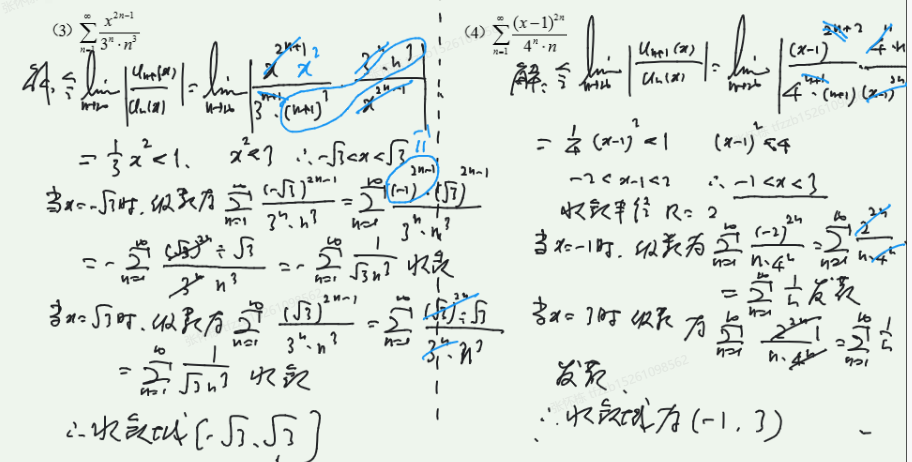 (3) $\sum_{n=1}^{\infty} \frac{x^{2n-1}}{3^n \cdot n^3}$
解: $\lim_{n\to\infty} \left| \frac{u_{n+1}(x)}{u_n(x)} \right| = \lim_{n\to\infty} \left| \frac{x^{2n+1}}{3^{n+1} \cdot (n+1)^3} \cdot \frac{3^n \cdot n^3}{x^{2n-1}} \right|$ $x^2$
$= \frac{1}{3} x^2 < 1.$ $x^2 < 3$ $\therefore -\sqrt{3} < x < \sqrt{3}$
当 $x = -\sqrt{3}$ 时. 级数为 $\sum_{n=1}^{\infty} \frac{(-\sqrt{3})^{2n-1}}{3^n \cdot n^3} = \sum_{n=1}^{\infty} \frac{(-1)^{2n-1} \cdot (\sqrt{3})^{2n-1}}{3^n \cdot n^3}$ $= -1$
$= -\sum_{n=1}^{\infty} \frac{(\sqrt{3})^{2n} \div \sqrt{3}}{3^n \cdot n^3} = -\sum_{n=1}^{\infty} \frac{1}{\sqrt{3} n^3}$ 收敛
当 $x = \sqrt{3}$ 时. 级数为 $\sum_{n=1}^{\infty} \frac{(\sqrt{3})^{2n-1}}{3^n \cdot n^3} = \sum_{n=1}^{\infty} \frac{(\sqrt{3})^{2n} \div \sqrt{3}}{3^n \cdot n^3}$
$= \sum_{n=1}^{\infty} \frac{1}{\sqrt{3} n^3}$ 收敛
$\therefore$ 收敛域 $[-\sqrt{3}, \sqrt{3}]$
(4) $\sum_{n=1}^{\infty} \frac{(x-1)^{2n}}{4^n \cdot n}$
解: $\lim_{n\to\infty} \left| \frac{u_{n+1}(x)}{u_n(x)} \right| = \lim_{n\to\infty} \left| \frac{(x-1)^{2n+2}}{4^{n+1} \cdot (n+1)} \cdot \frac{4^n \cdot n}{(x-1)^{2n}} \right.$
$= \frac{1}{4} (x-1)^2 < 1$ $(x-1)^2 < 4$
$-2 < x-1 < 2$ $\therefore -1 < x < 3$
收敛半径 $R = 2$
当 $x = -1$ 时. 级数为 $\sum_{n=1}^{\infty} \frac{(-2)^{2n}}{n \cdot 4^n} = \sum_{n=1}^{\infty} \frac{2^{2n}}{n \cdot 4^n}$
$= \sum_{n=1}^{\infty} \frac{1}{n}$ 发散
当 $x = 3$ 时 级数为 $\sum_{n=1}^{\infty} \frac{2^{2n} 1}{n \cdot 4^n} = \sum_{n=1}^{\infty} \frac{1}{n}$
发散
$\therefore$ 收敛域为 $(-1, 3)$